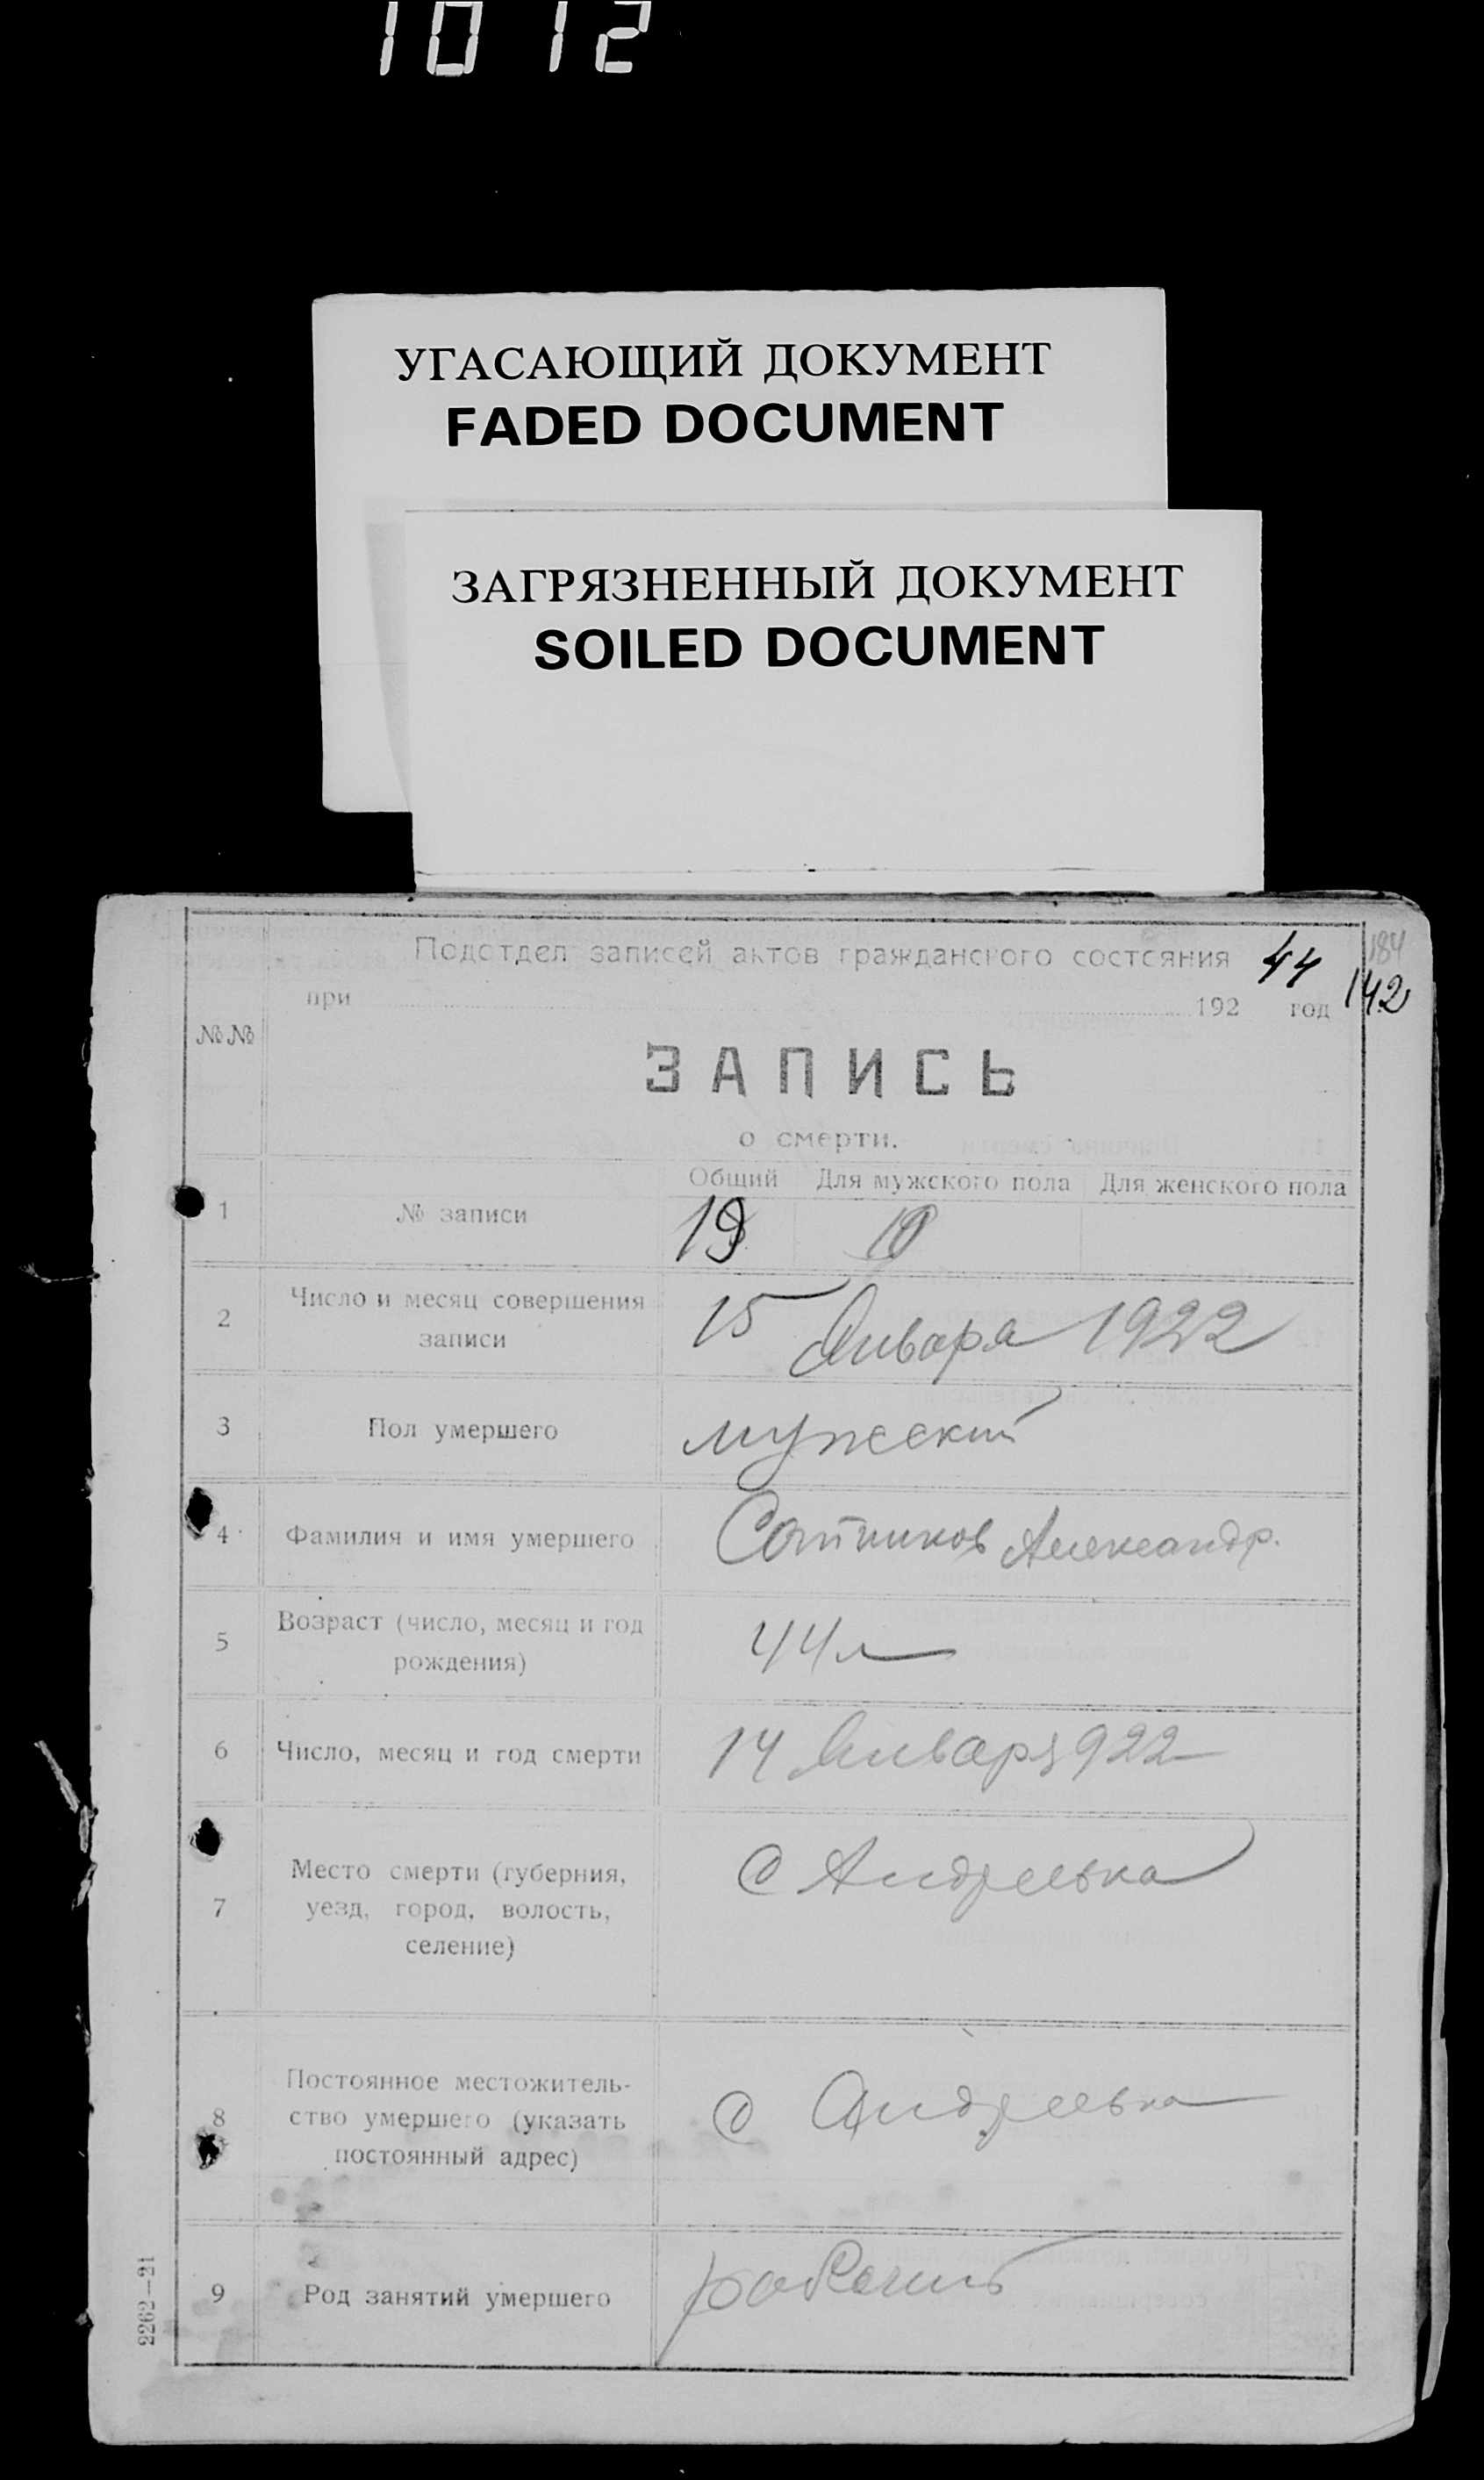 1012
УГАСАЮЩИЙ ДОКУМЕНТ
FADED DOCUMENT
ЗАГРЯЗНЕННЫЙ ДОКУМЕНТ
SOILED DOCUMENT
Подотдел записей актов гражданского состояния 44 184
при 192 год 142
№№
ЗАПИСЬ
о смерти.
Общий Для мужского пола Для женского пола
1 № записи 19 10
2 Число и месяц совершения
записи
15 Января 1922
3 Пол умершего мужеский
4 Фамилия и имя умершего Сотников Александр.
5 Возраст (число, месяц и год
рождения)
44 л
6 Число, месяц и год смерти 14 Января 922
7 Место смерти (губерния,
уезд, город, волость,
селение)
С Андреевка
8 Постоянное местожитель-
ство умершего (указать
постоянный адрес)
С Андреевка
9 Род занятий умершего рабочий
2262—21